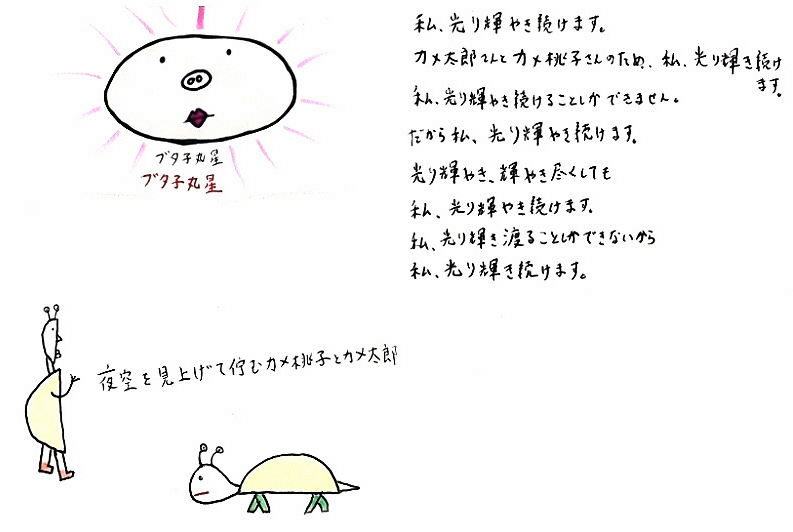 ブタ子丸星
ブタ子丸星
私、光り輝やき続けます。
カメ太郎さんとカメ桃子さんのため、私、光り輝き続け
ます。
私、光り輝やき続けることしかできません。
だから私、光り輝やき続けます。
光り輝やき、輝やき尽くしても
私、光り輝やき続けます。
私、光り輝き渡ることしかできないから
私、光り輝き続けます。
夜空を見上げて佇むカメ桃子とカメ太郎